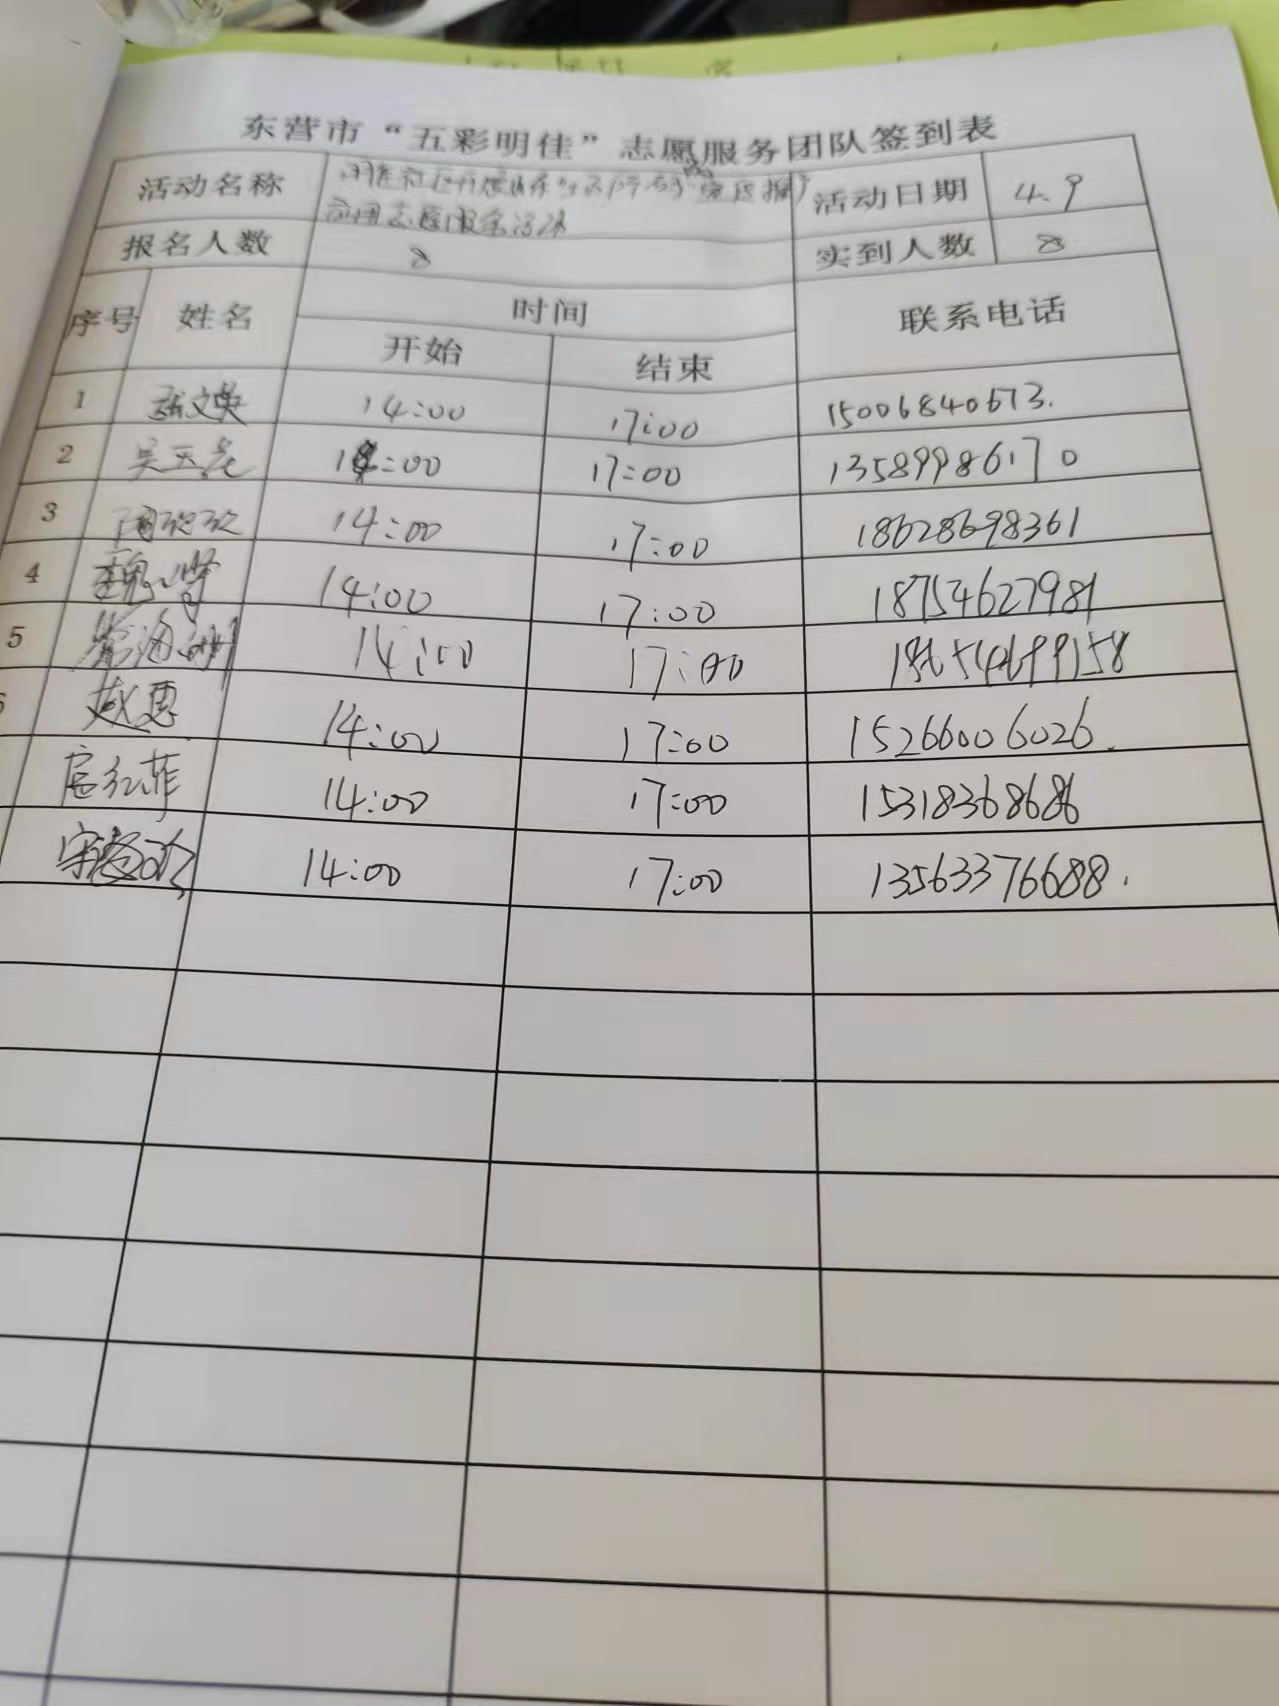 东营市“五彩明佳”志愿服务团队签到表
活动名称 应用志愿服务活动 活动日期 4.9
报名人数 8 实到人数 8
序号 姓名 时间 联系电话
开始 结束
1 14:00 17:00 15006840673.
2 吴玉亮 14:00 17:00 13589986170
3 14:00 17:00 18628698361
4 魏 14:00 17:00 18754627981
5 14:00 17:00 18654699158
6 臧惠 14:00 17:00 15266006026.
扈红菲 14:00 17:00 15318368686
宋 14:00 17:00 13563376688.